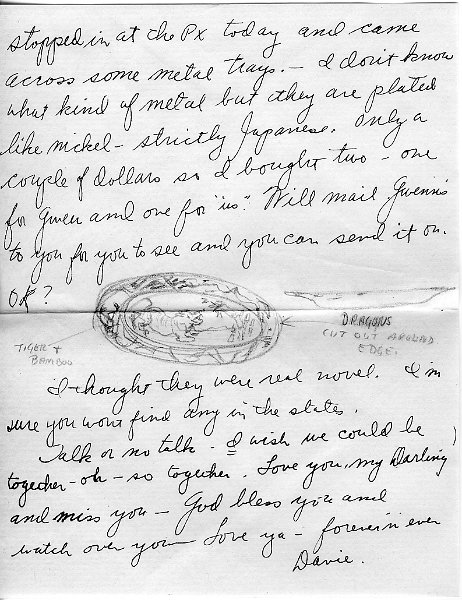 stopped in at the Px today and came
across some metal trays. — I don't know
what kind of metal but they are plated
like nickel - strictly Japanese. Only a
couple of dollars so I bought two - one
for Gwen and one for "us". Will mail Gwenn's
to you for you to see and you can send it on.
OK?
TIGER +
BAMBOO
DRAGONS
CUT OUT AROUND
EDGE.
I thought they were real novel. I'm
sure you wont find any in the states.
Talk or no talk - I wish we could be
together - oh - so together. Love you, my Darling
and miss you — God bless you and
watch over you — Love ya - forever'n ever
Davie.